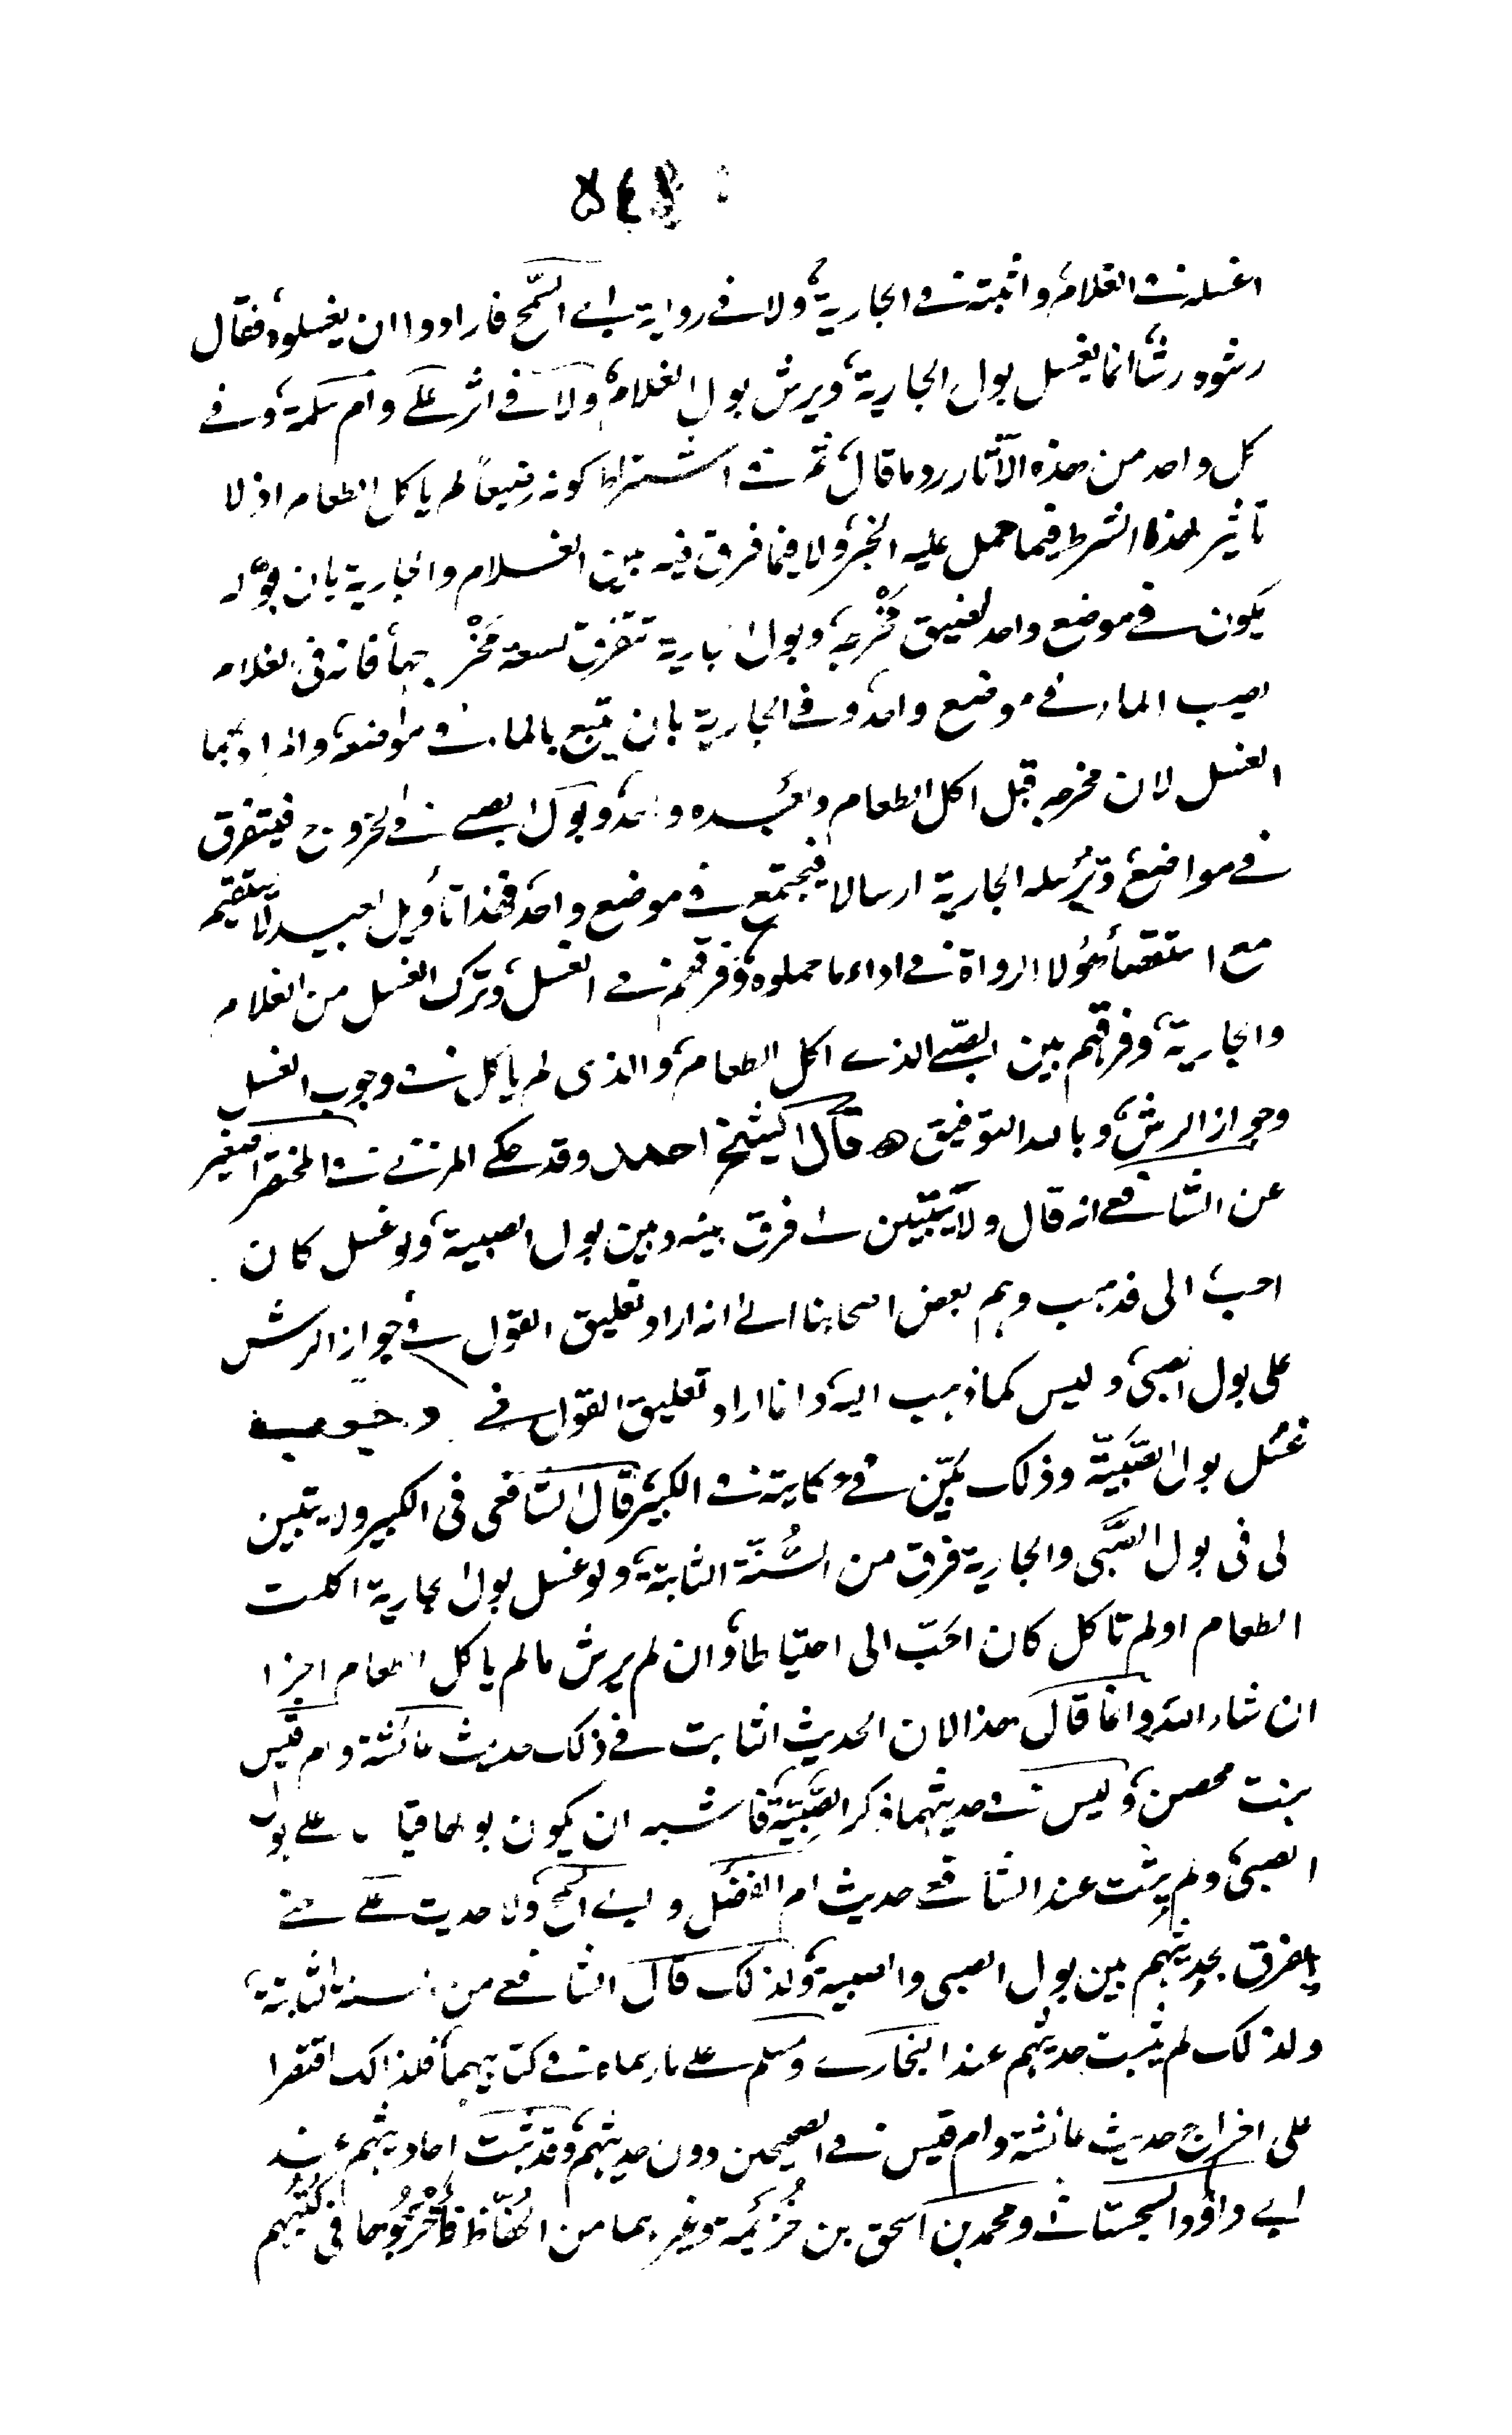 اغسله فى الغلام، واثبته فى الجارية، ولا فى رواية ابى السمح فارادوا ان يغسلوه، فقال
رشوه رشا، انما يغسل بول الجارية، ويرش بول الغلام، ولا فى اثر على وام سلمة، وفى
كل واحد من هذه الآثار رد ما قال، ثم فى اشتراط كونه رضيعاً لم ياكل الطعام اذ لا
تاثير لهذا الشرط فيما حمل عليه الخبر، ولا فيما فرق فيه بين الغلام والجارية بان بوله
يكون فى موضع واحد لضيق مَخْرجه، وبول الجارية تتفرق لسعة مَخْرجها، فانه فى الغلام
يصيب الماء فى موضع واحد، وفى الجارية بان يتبع بالماء فى مواضعه، واراد بهما
الغسل لان مخرجه قبل اكل الطعام وبعده واحد، وبول الصبى فى الخروج فيتفرق
فى مواضع، وترُسله الجارية ارسالا فيجتمع فى موضع واحد، فهذا تأويل بعيد لا يستقيم
مع استقصأ هؤلا الرواة فى اداء ما حملوه، وفرقهم فى الغسل، وترك الغسل من الغلام
والجارية، وفرقهم بين الصّبى الذى اكل الطعام، والذى لم ياكل فى وجوب الغسل
وجواز الرش، وبالله التوفيق ه قال الشيخ احمد وقد حكى المزنى فى المختصر الصغير
عن الشافعى انه قال ولا يتبّين لى فرق بينه وبين بول الصبية، ولو غسل كان
احب الى فذهب وهم بعض اصحابنا الى انه اراد تعليق القول فى جواز الرش
على بول الصبى، وليس كما ذهب اليه، وانما اراد تعليق القول فى وجوب
غَسْل بول الصَّبيّة، وذلك بيّن فى حكايته فى الكبير، قال الشافعى فى الكبير ولا يتبين
لى فى بول الصَّبى والجارية فرق من السُّنّة الثابتة، ولو غسل بول الجارية اكلت
الطعام او لم تاكل كان احَبّ الى احتياطا، وان لم يرش ما لم ياكل الطعام اجزا
ان شاء الله، وانما قال هذا لان الحديث الثابت فى ذلك حديث عائشة وام قيس
بنت محصن، وليس فى حديثهما ذكر الصَّبِيّة، فاشبه ان يكون بولها قياسا على بول
الصبى، ولم يثبت عند الشافعى حديث ام الفضل وابى السمح، ولا حديث على حتى
يفرق بحديثهم بين بول الصبى والصبية، ولذلك قال الشافعى من السنة الثابتة،
ولذلك لم يثبت حديثهم عند البخارى ومسلم على ما رسماه فى كتابيهما، فلذلك اقتصرا
على اخراج حديث عائشة وام قيس فى الصحيحين دون حديثهم، وقد ثبت احاديثهم عند
ابى داؤد السجستانى ومحمد بن اسحق بن خُزَيْمة وغيرهما من الحُفّاظ، فأخْرَجُوها فى كُتُبهم